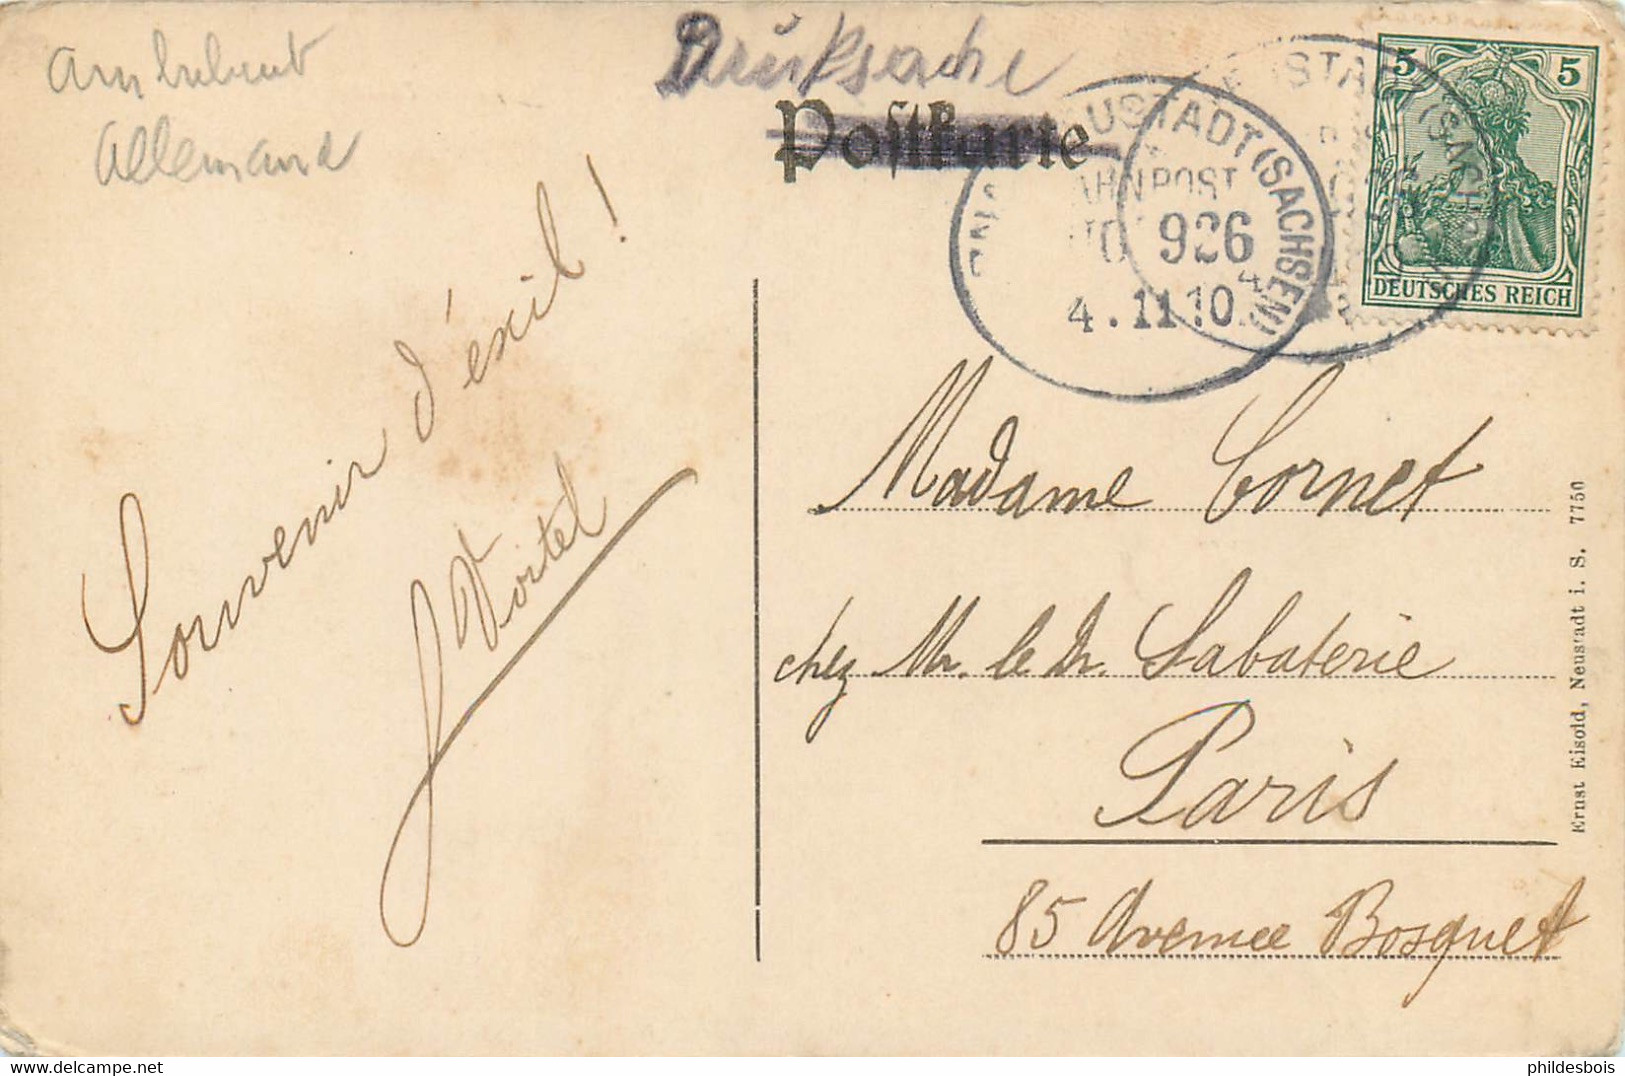 Allemand
Drucksache
Postkarte
NEUSTADT (SACHSEN)
BAHNPOST
926
4.11.10
5 5
DEUTSCHES REICH
Souvenir d'exil !
J Voitel
Madame Cornet
chez Mr. le Dr. Sabaterie
Paris
85 Avenue Bosquet
Ernst Eisold, Neustadt i. S. 7750
phildesbois